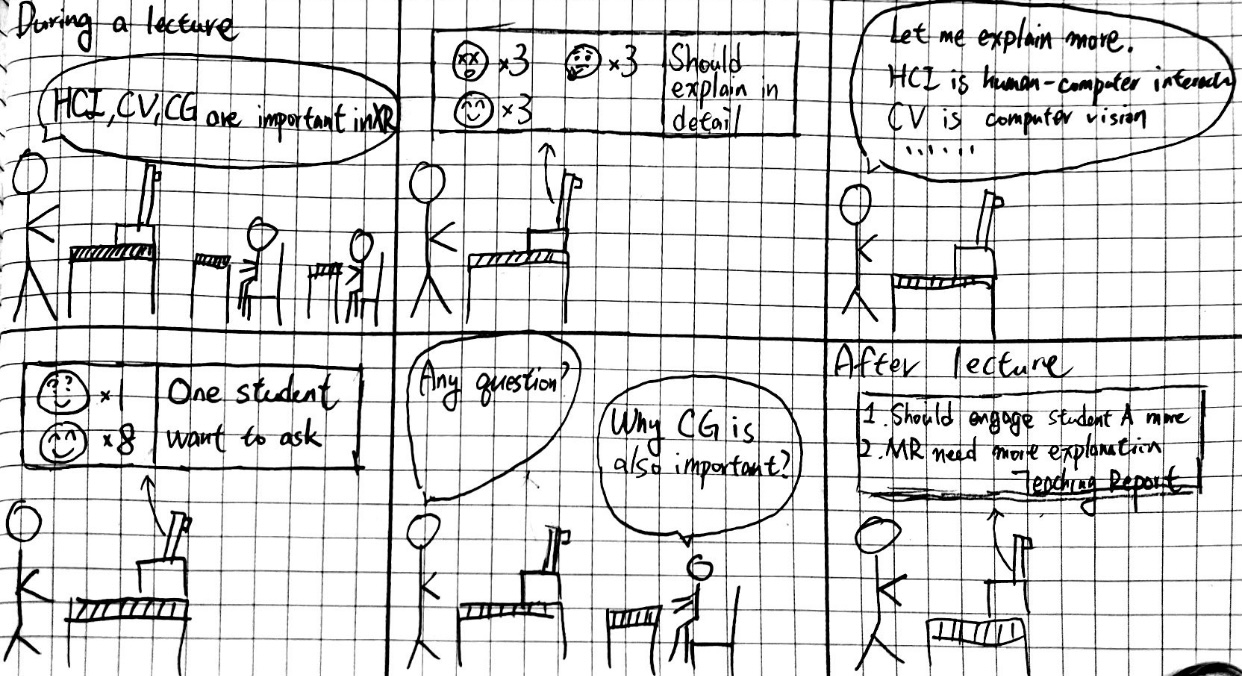 During a lecture
HCI, CV, CG are important in XR
×3 ×3
×3
Should
explain in
detail
Let me explain more.
HCI is human-computer interact
CV is computer vision
......
?? ×1
×8
One student
want to ask
Any question?
Why CG is
also important?
After lecture
1. Should engage student A more
2. MR need more explanation
Teaching Report